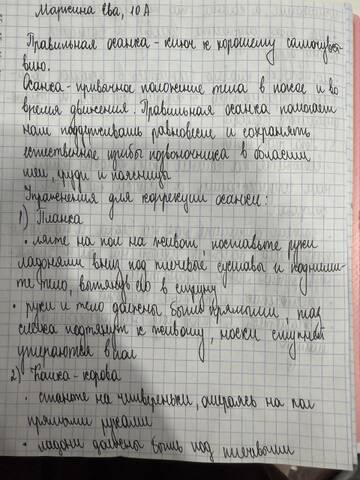 Маркина Ева, 10 А
Правильная осанка - ключ к хорошему самочувст-
вию.
Осанка - привычное положение тела в покое и во
время движения. Правильная осанка помогает
нам поддерживать равновесие и сохранять
естественные изгибы позвоночника в области
шеи, груди и поясницы
Упражнения для коррекции осанки:
1) Планка
• лягте на пол на живот, поставьте руки
ладонями вниз под плечевые суставы и поднími-
те тело, вытянув его в струну
• руки и тело должны быть прямыми, таз
слегка подтянут к животу, носки ступней
упираются в пол
2) Кошка-корова
• станьте на четвереньки, опираясь на пол
прямыми руками
• ладони должны быть под плечевыми